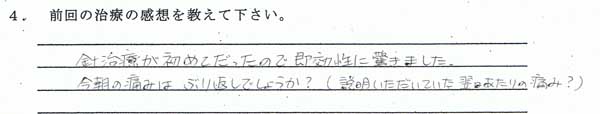 4. 前回の治療の感想を教えて下さい。
針治療が初めてだったので即効性に驚きました。
今朝の痛みは ぶり返しでしょうか?(説明いただいていた翌日あたりの痛み?)